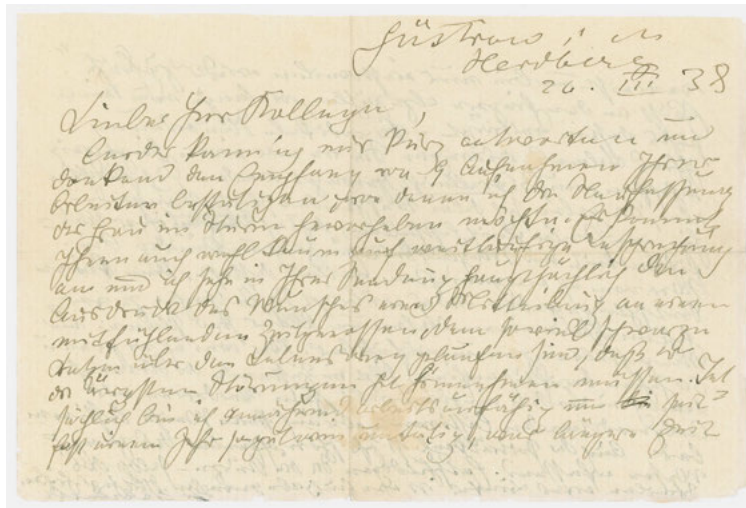 Güstrow i. M
Heidberg
26. III 38
Lieber Herr Kollege,
Leider kann ich nur kurz antworten und
dankend den Empfang von 9 Aufnahmen Ihrer
Arbeiten bestätigen von denen ich die Neufassung
der Frau im Sturm hervorheben möchte. Es kommt
Ihnen auch wohl kaum auf weitläufige Besprechung
an und ich sehe in Ihrer Sendung hauptsächlich den
Ausdruck des Wunsches nach Mitteilung an einen
mitfühlenden Zeitgenossen, dem soviel schwarze
Katzen über den Lebensweg gelaufen sind, daß er
die ärgsten Störungen hat hinnehmen müssen. Tat-
sächlich bin ich arbeitsunfähig und seit
fast einem Jahr so gut wie untätig, war längere Zeit